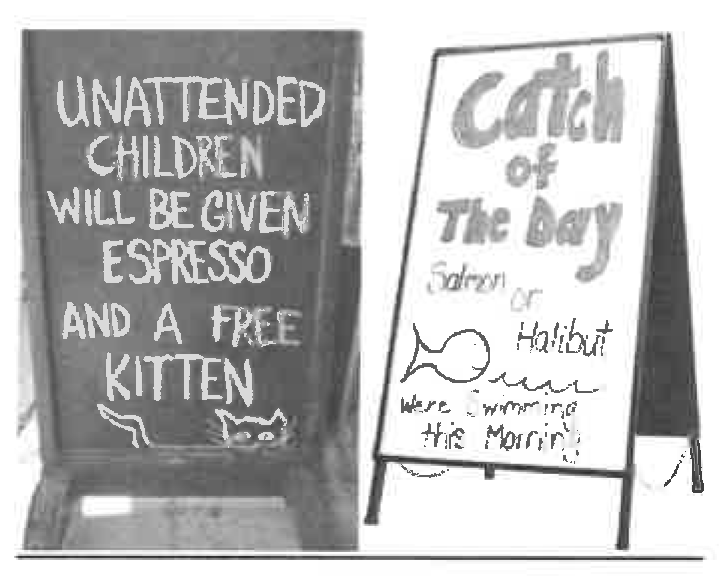 UNATTENDED
CHILDREN
WILL BE GIVEN
ESPRESSO
AND A FREE
KITTEN
Catch
of
The Day
Salmon
or
Halibut
Were Swimming
this Morning